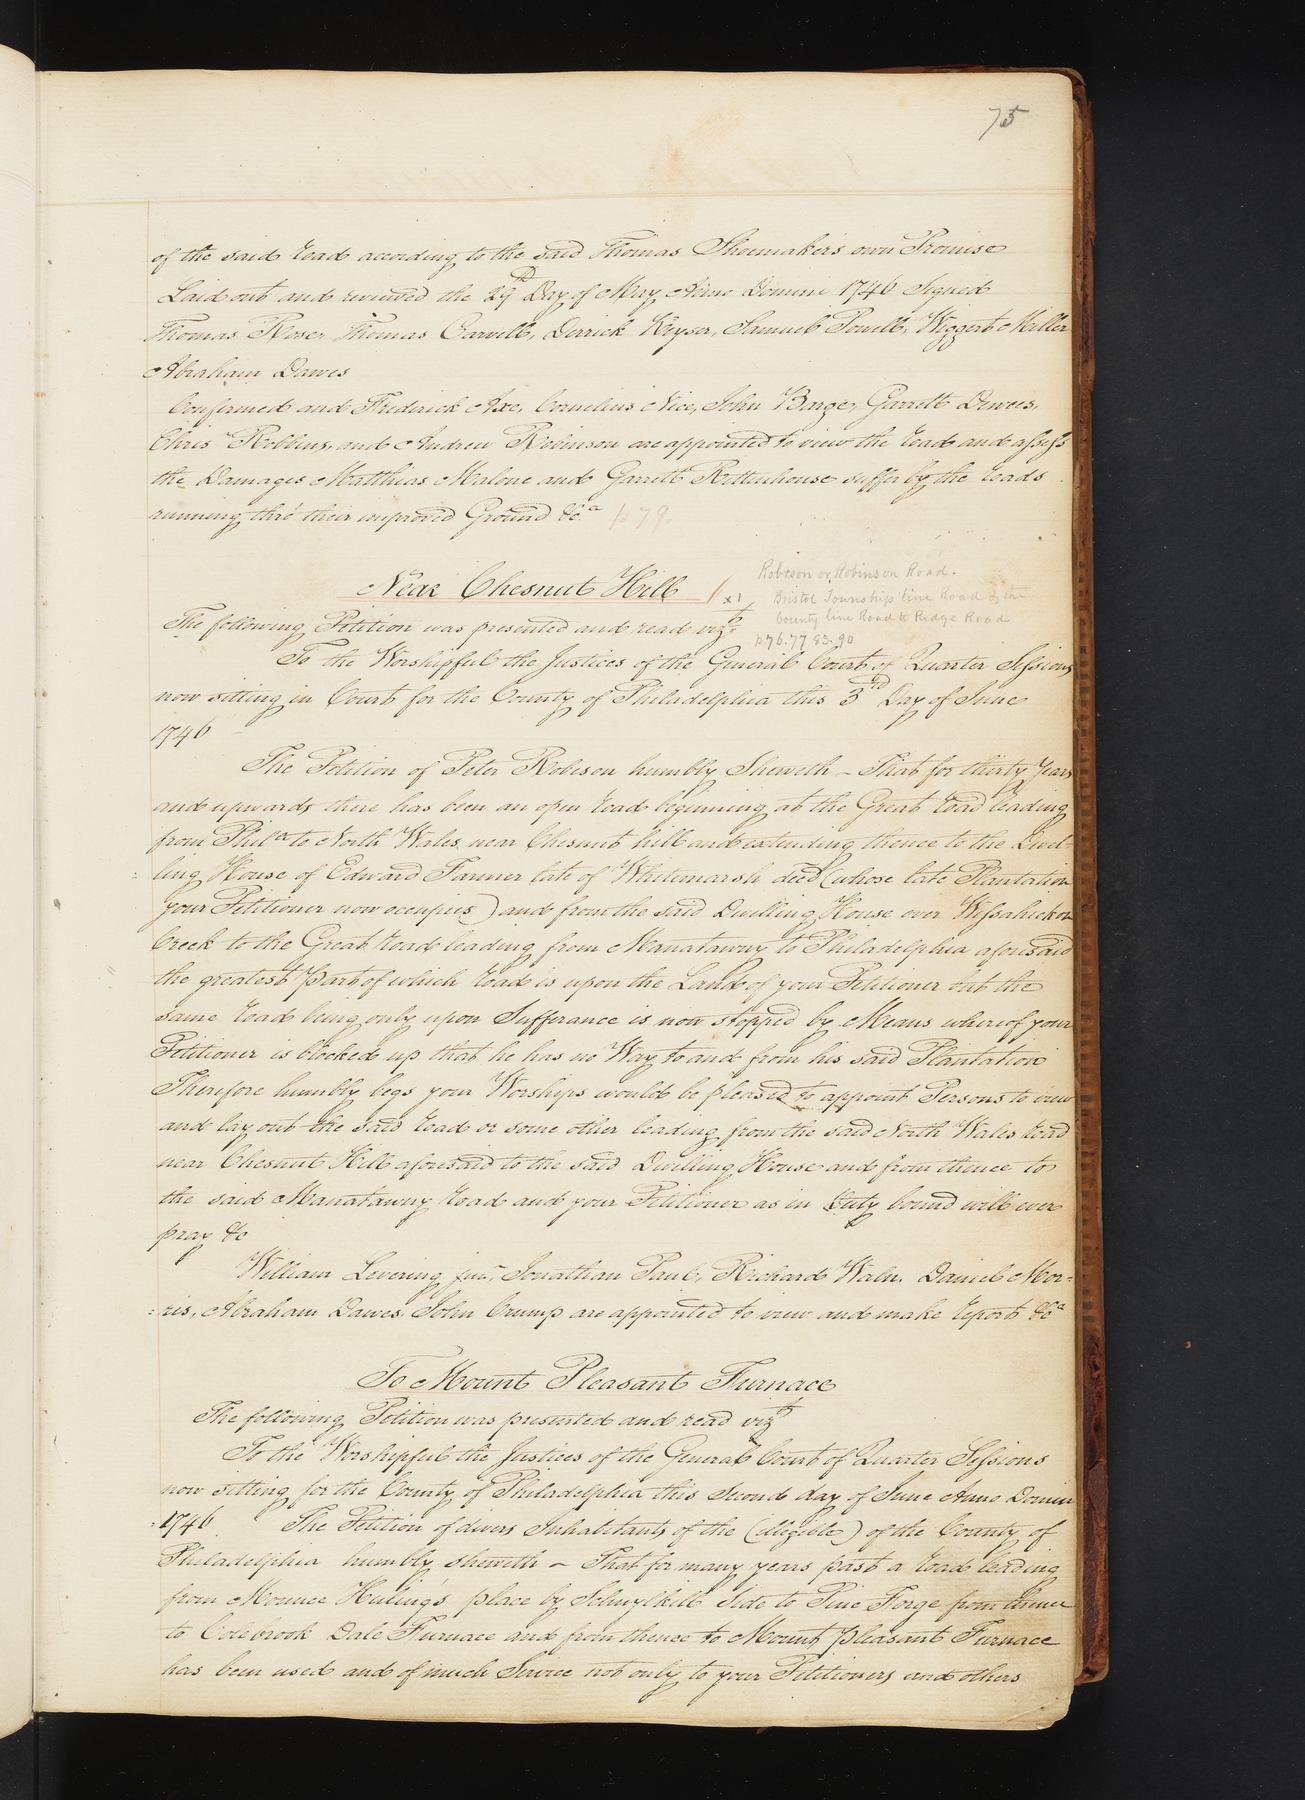 75
of the said Road according to the said Thomas Shoemakers own Promise
Laid out and reviewed the 29th Day of May Anno Domini 1746 Signed
Thomas Rose, Thomas Carvell, Derrick Keyser, Samuel Powell, Wiggert Miller
Abraham Dawes
Confirmed and Frederick Axe, Cornelius Nice, John Barge, Garrett Dewees,
Chris Robbins, and Andrew Robinson are appointed to view the Road and assess
the Damages Matthias Malone and Garrett Rittenhouse suffer by the Roads
running thro' their improved Ground &ca p 79.
Near Chesnut Hill x1
Robeson or Robinson Road.
Bristol Township line Road & the
County line Road to Ridge Road
p 76. 77 83. 90
The following Petition was presented and read vizt
To the Worshipful the Justices of the General Court of Quarter Sessions
now sitting in Court for the County of Philadelphia this 3rd Day of June
1746
The Petition of Peter Robeson humbly Sheweth – That for thirty Years
and upwards there has been an open Road beginning at the Great Road leading
from Phila to North Wales near Chesnut hill and extending thence to the Dwel=
ling House of Edward Farmer late of Whitemarsh deced (whose late Plantation
your Petitioner now occupies) and from the said Dwelling House over Wissahickon
Creek to the Great Road leading from Manatawny to Philadelphia aforesaid
the greatest Part of which Road is upon the Land of your Petitioner but the
same Road being only upon Sufferance is now stopped by Means whereof your
Petitioner is blocked up that he has no Way to and from his said Plantation
Therefore humbly begs your Worships would be pleased to appoint Persons to view
and lay out the said Road or some other leading from the said North Wales Road
near Chesnut Hill aforesaid to the said Dwelling House and from thence to
the said Manatawny Road and your Petitioner as in Duty bound will ever
pray &c
William Levering junr, Jonathan Paul, Richard Waln. Daniel Mor=
=ris, Abraham Dawes John Crump are appointed to view and make Report &ca
To Mount Pleasant Furnace
The following Petition was presented and read vizt
To the Worshipful the Justices of the General Court of Quarter Sessions
now sitting for the County of Philadelphia this Second day of June Anno Domini
1746 The Petition of divers Inhabitants of the (illegible) of the County of
Philadelphia humbly sheweth – That for many years past a Road leading
from Mounce Hulings place by Schuylkill Side to Pine Forge from thence
to Colebrook Dale Furnace and from thence to Mount pleasant Furnace
has been used and of much Service not only to your Petitioners and others